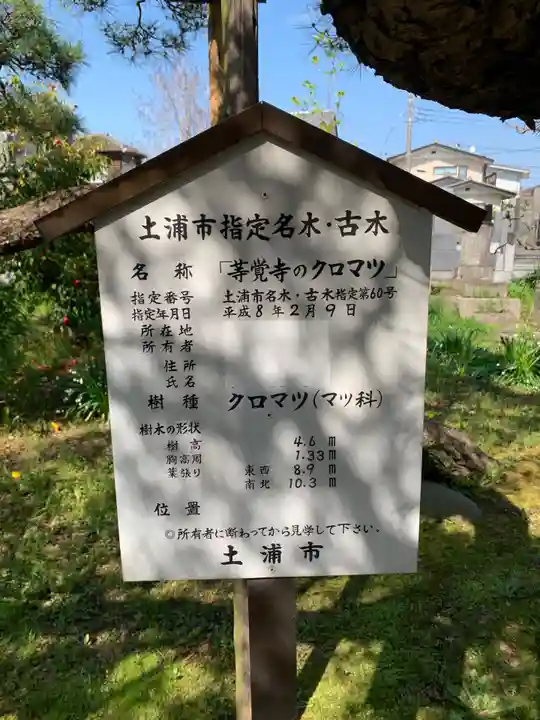 土浦市指定名木・古木
名称 「等覚寺のクロマツ」
指定番号 土浦市名木・古木指定第60号
指定年月日 平成8年2月9日
所在地
所有者
住所
氏名
樹種 クロマツ(マツ科)
樹木の形状
樹高 4.6m
胸高周 1.33m
葉張り 東西 8.9m
南北 10.3m
位置
◎所有者に断わってから見学して下さい。
土浦市